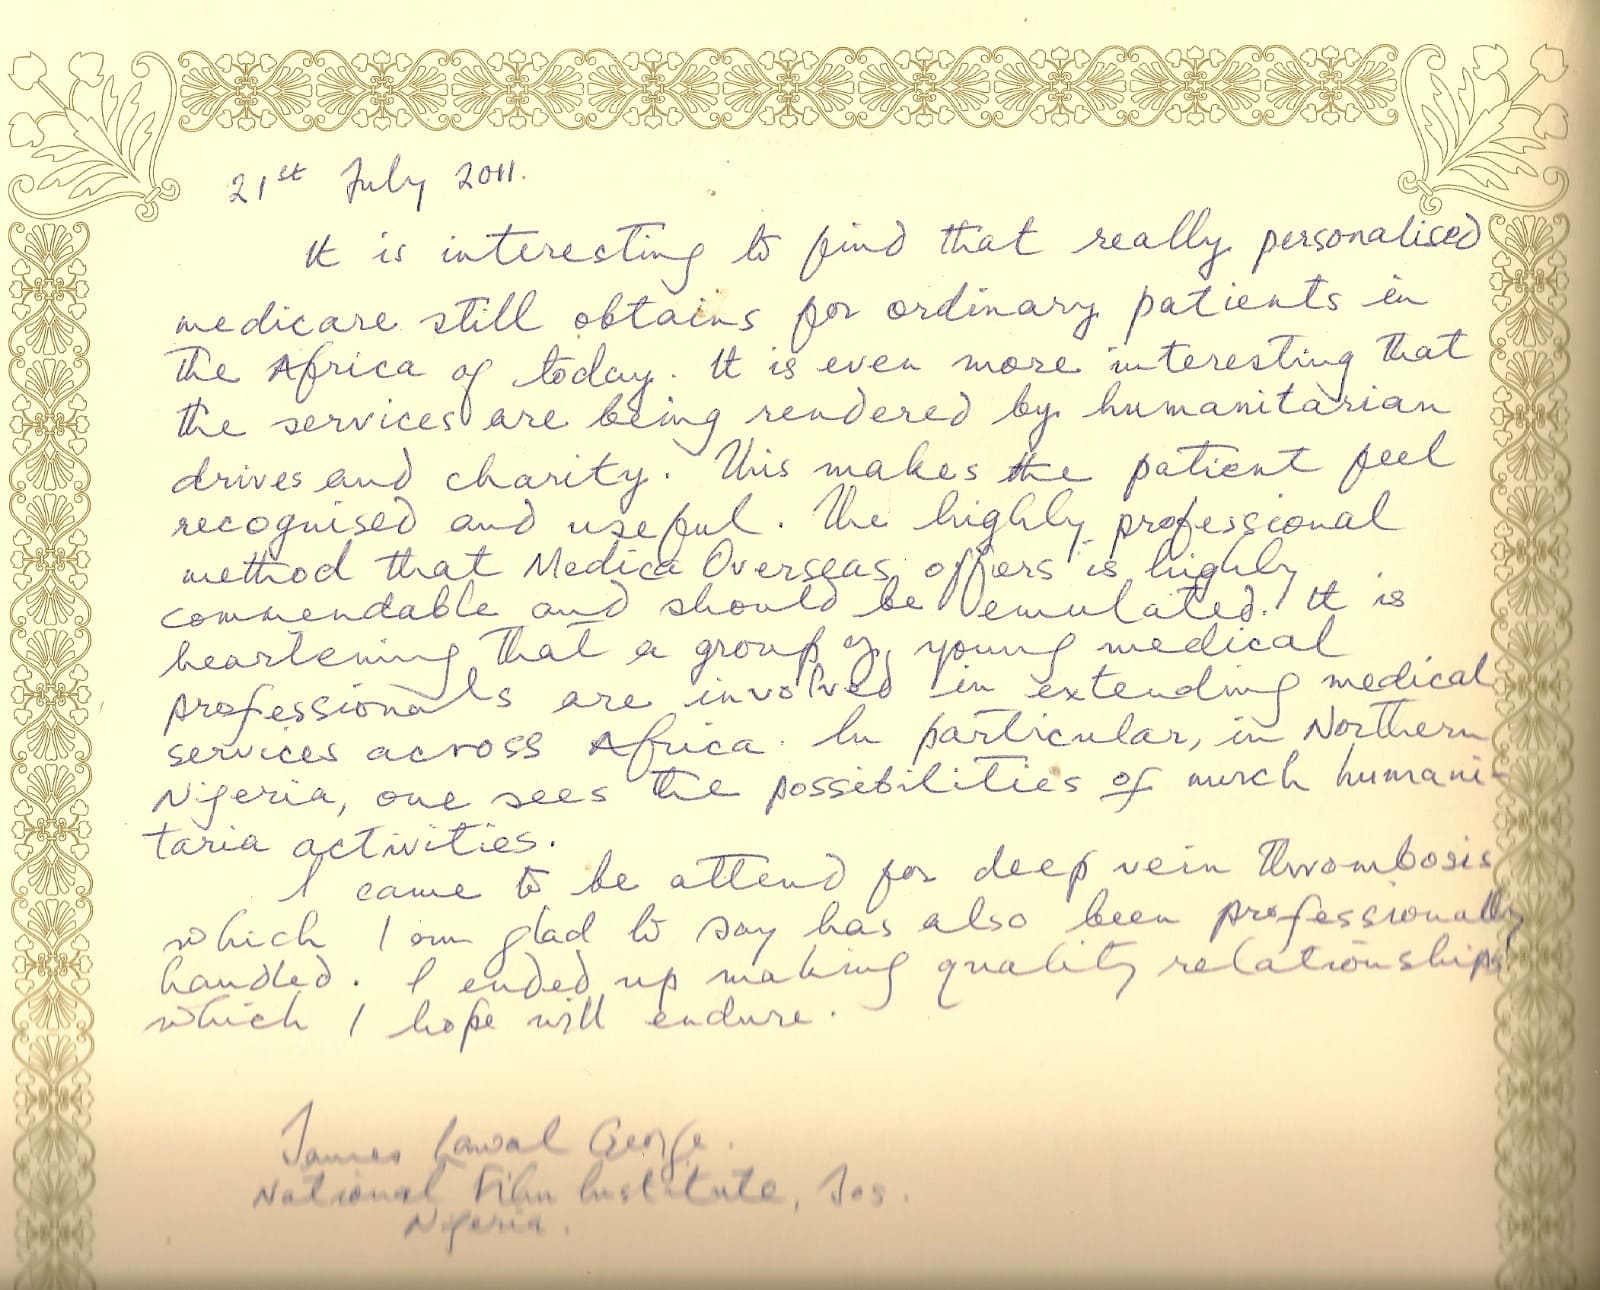 21st July 2011.
It is interesting to find that really personalised
medicare still obtains for ordinary patients in
the Africa of today. It is even more interesting that
the services are being rendered by humanitarian
drives and charity. This makes the patient feel
recognised and useful. The highly professional
method that Medica Overseas offers is highly
commendable and should be emulated. It is
heartening that a group of young medical
professionals are involved in extending medical
services across Africa. In particular, in Northern
Nigeria, one sees the possibilities of much humani-
taria activities.
I came to be attend for deep vein thrombosis
which I am glad to say has also been professionally
handled. I ended up making quality relationships
which I hope will endure.
James Lawal George.
National Film Institute, Jos.
Nigeria.